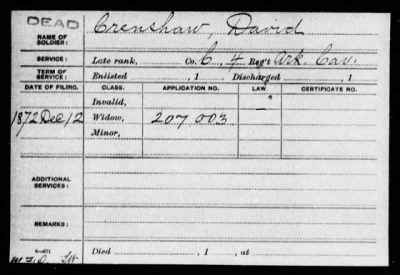 DEAD
NAME OF SOLDIER: Crenshaw, David
SERVICE: Late rank, Co. C, 4 Reg't Ark. Cav.
TERM OF SERVICE: Enlisted , 1 Discharged , 1
DATE OF FILING. CLASS. APPLICATION NO. LAW. CERTIFICATE NO.
Invalid,
1872 Dec 12 Widow, 207.003 "
Minor,
ADDITIONAL SERVICES:
REMARKS:
Died , 1 , at